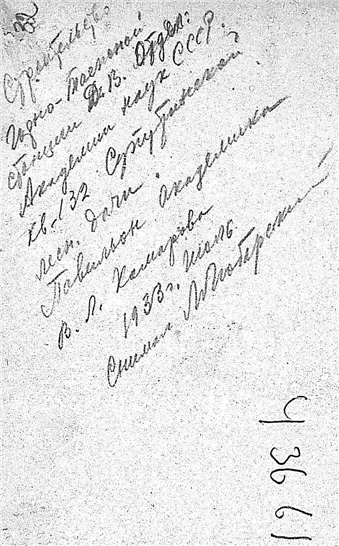 32
Строительство
Горно-Таежной
станции Д.В. Отдел.
Академии наук СССР.
Кв-132 Супутинской
лесн. дачи.
Павильон академика
В. Л. Комарова
1933 г. июль
Снимал
43661